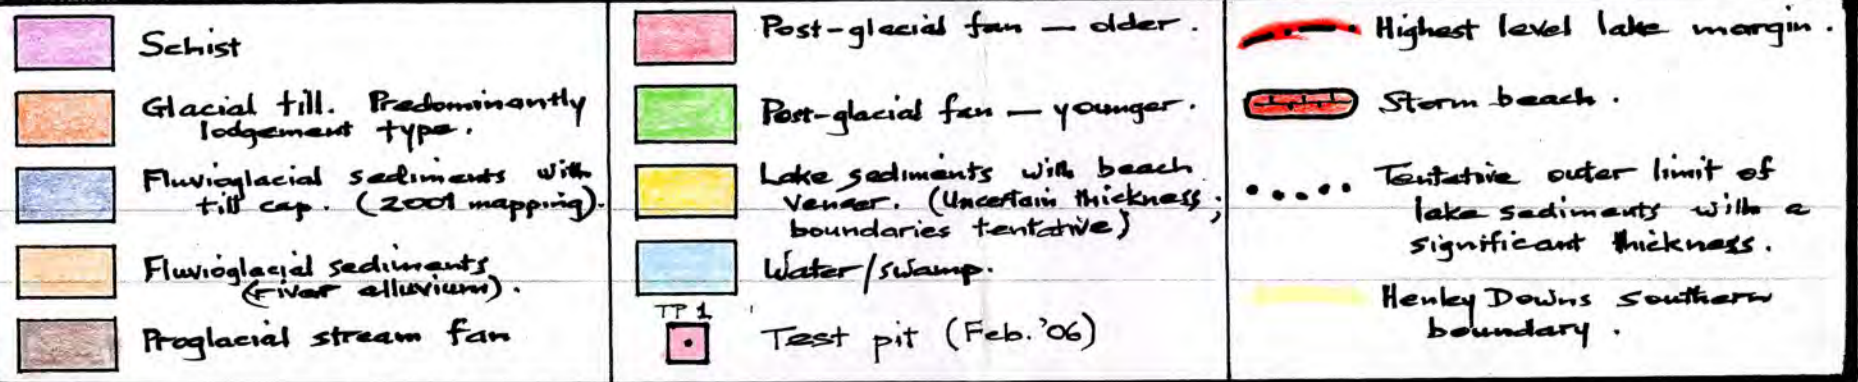 Schist
Glacial till. Predominantly
lodgement type.
Fluvioglacial sediments with
till cap. (2001 mapping).
Fluvioglacial sediments
(river alluvium).
Proglacial stream fan
Post-glacial fan — older.
Post-glacial fan — younger.
Lake sediments with beach
veneer. (Uncertain thickness;
boundaries tentative)
Water/swamp.
TP 1
Test pit (Feb. '06)
Highest level lake margin.
Storm beach.
Tentative outer limit of
lake sediments with a
significant thickness.
Henley Downs southern
boundary.